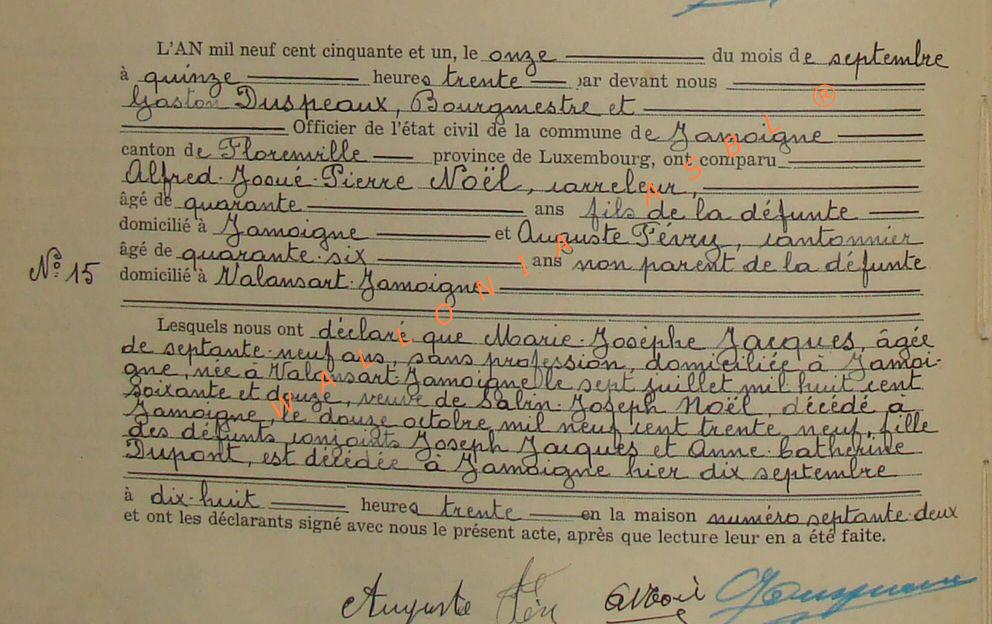 L'AN mil neuf cent cinquante et un, le onze du mois de septembre
à quinze heures trente par devant nous
Gaston Duspeaux, Bourgmestre et
Officier de l'état civil de la commune de Jamoigne
canton de Florenville province de Luxembourg, ont comparu
Alfred-Josué-Pierre Noël, carreleur,
âgé de quarante ans fils de la défunte
domicilié à Jamoigne et Auguste Févry, cantonnier
âgé de quarante-six ans non parent de la défunte
Nº 15
domicilié à Valansart-Jamoigne
Lesquels nous ont déclaré que Marie-Josèphe Jacques, âgée
de septante-neuf ans, sans profession, domiciliée à Jamoi-
gne, née à Valansart-Jamoigne le sept juillet mil huit cent
soixante et douze, veuve de Sabin-Joseph Noël, décédé à
Jamoigne, le douze octobre mil neuf cent trente-neuf, fille
des défunts conjoints Joseph Jacques et Anne-Catherine
Dupont, est décédée à Jamoigne hier dix septembre
à dix-huit heures trente en la maison numéro septante-deux
et ont les déclarants signé avec nous le présent acte, après que lecture leur en a été faite.
Auguste
WALLONIA ASBL ®